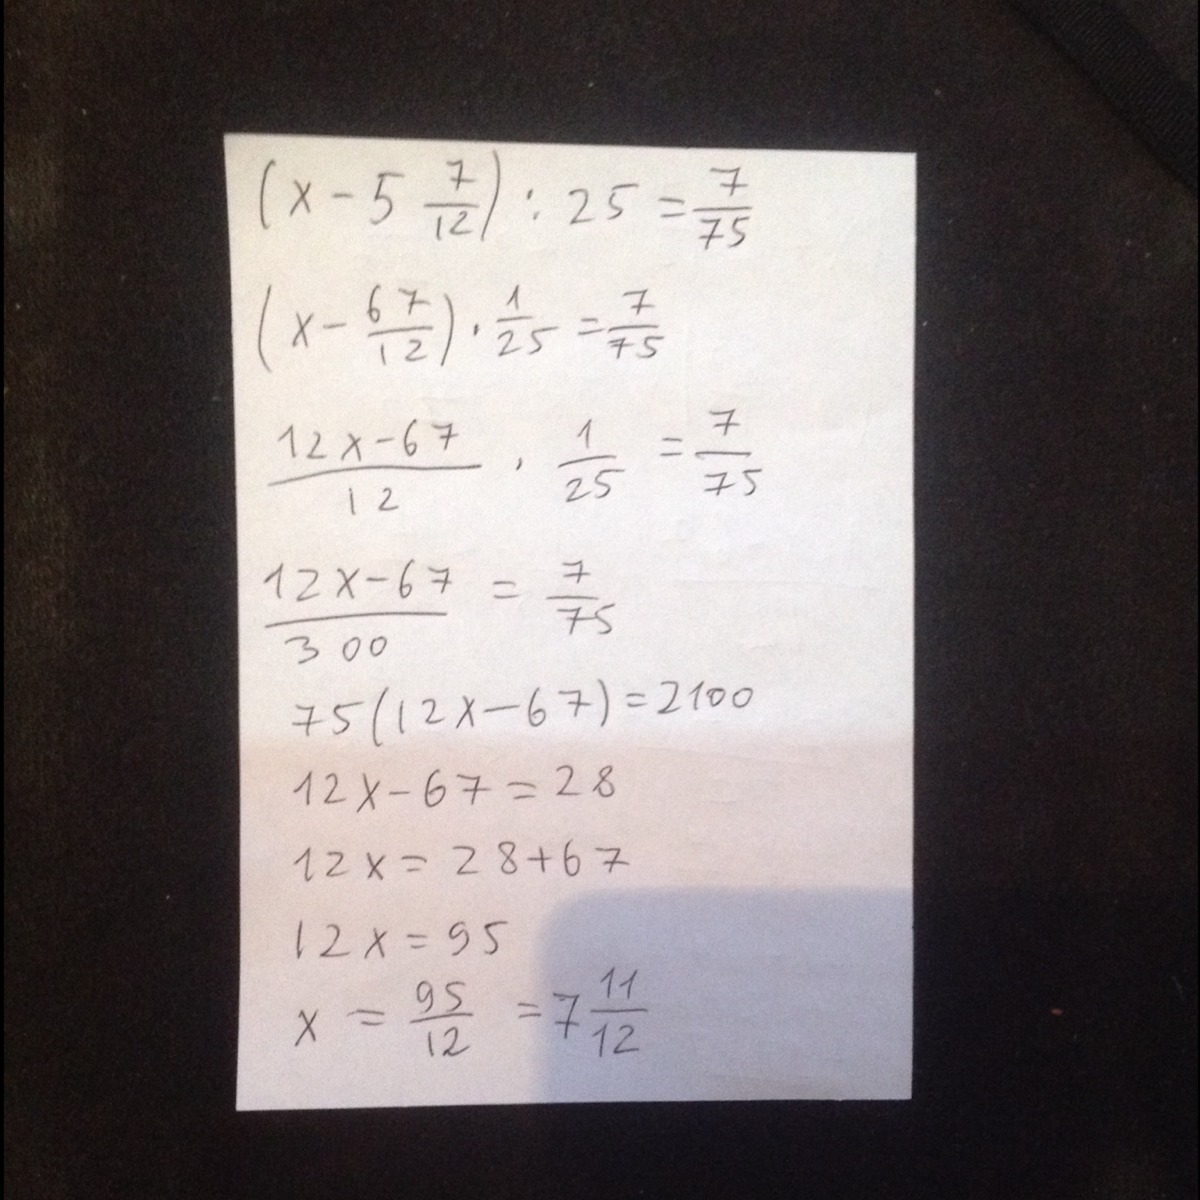 (x - 5 7/12) : 25 = 7/75
(x - 67/12) · 1/25 = 7/75
12x-67/12 · 1/25 = 7/75
12x-67/300 = 7/75
75(12x-67)=2100
12x-67=28
12x=28+67
12x=95
x = 95/12 = 7 11/12